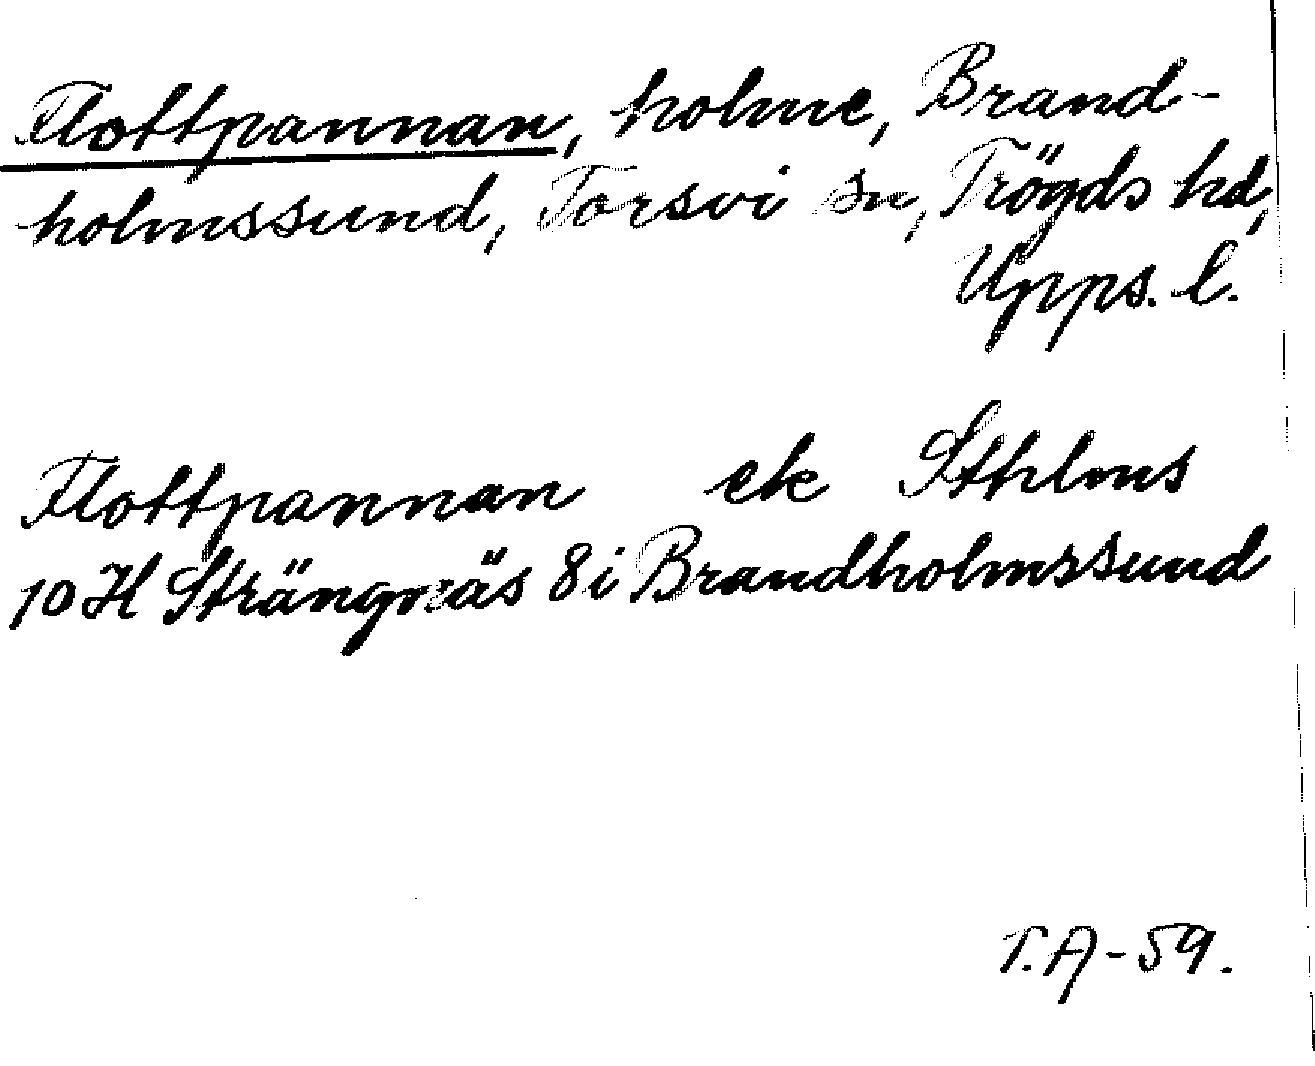 Flottpannan, holme, Brand-
holmssund, Torsvi sn, Trögds hd,
Upps. l.
Flottpannan ek Sthlms
10 H Strängnäs 8 i Brandholmssund
T.A-59.